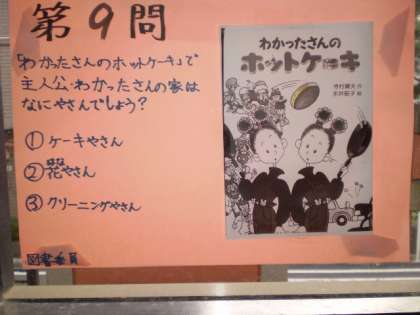 第9問
「わかったさんのホットケーキ」で
主人公・わかったさんの家は
なにやさんでしょう?
① ケーキやさん
② 花やさん
③ クリーニングやさん
図書委員
わかったさんの
ホットケーキ
寺村輝夫 作
永井郁子 絵